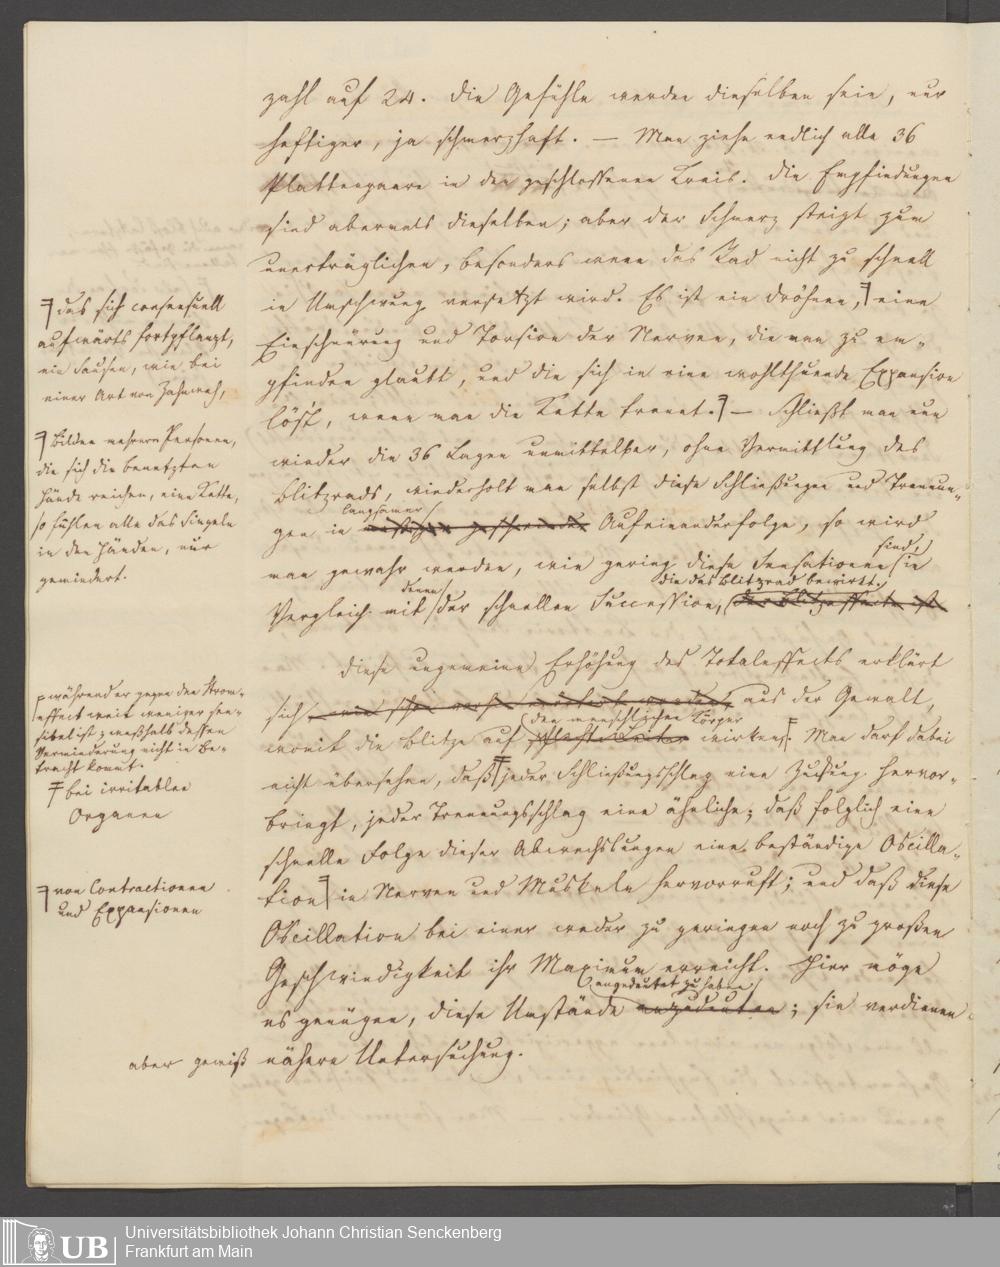 zahl auf 24. Die Gefühle werden dieselben sein, nur
heftiger, ja schmerzhaft. — Man ziehe endlich alle 36
Plattenpaare in den geschlossenen Kreis. Die Empfindungen
sind abermals dieselben; aber der Schmerz steigt zum
unerträglichen, besonders wenn das Rad nicht zu schnell
in Umschwung versetzt wird. Es ist ein Dröhnen, eine
Einschnürung und Torsion der Nerven, die man zu em-
pfinden glaubt, und die sich in eine wohlthuende Expansion
löst, wenn man die Kette trennt. — Schließt man nun
wieder die 36 Lagen unmittelbar, ohne Vermittlung des
Blitzrads, wiederholt man selbst diese Schließungen und Trennun-
langsamer
gen in Aufeinanderfolge, so wird
sind,
man gewahr werden, wie gering diese Sensationen in
denen die das Blitzrad bewirkt.
Vergleich mit der schnellen Succession, der Blitzeffecte ist
Diese ungemeine Erhöhung des Totaleffects erklärt
sich, wie schon erörtert worden, aus der Gewalt,
den menschlichen Körper
womit die Blitze auf wirken. Man darf dabei
nicht übersehen, daß jeder Schließungsschlag eine Zuckung hervor-
bringt, jeder Trennungsschlag eine ähnliche; daß folglich eine
schnelle Folge dieser Abwechslungen eine beständige Oscilla-
tion in Nerven und Muskeln hervorruft; und daß diese
Oscillation bei einer weder zu geringen noch zu großen
Geschwindigkeit ihr Maximum erreicht. Hier möge
angedeutet zu haben
es genügen, diese Umstände anzudeuten; sie verdienen
aber gewiß nähere Untersuchung.
das sich consensuell
aufwärts fortpflanzt,
ein Sausen, wie bei
einer Art von Zahnweh,
Bilden mehrere Personen,
die sich die benetzten
Hände reichen, eine Kette,
so fühlen alle das Singeln
in den Händen, nur
gemindert.
während er gegen den Strom-
effect weit weniger sen-
sibel ist; weßhalb dessen
Verminderung nicht in Be-
tracht kommt.
bei irritablen
Organen
von Contractionen
und Expansionen
UB
Universitätsbibliothek Johann Christian Senckenberg
Frankfurt am Main